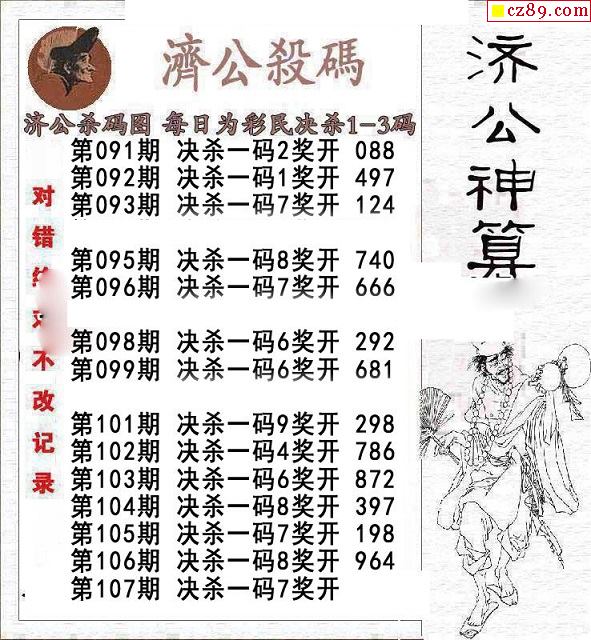 cz89.com
濟公殺碼
济公杀码图 每日为彩民决杀1-3码
第091期 决杀一码2奖开 088
第092期 决杀一码1奖开 497
第093期 决杀一码7奖开 124
第095期 决杀一码8奖开 740
第096期 决杀一码7奖开 666
第098期 决杀一码6奖开 292
第099期 决杀一码6奖开 681
第101期 决杀一码9奖开 298
第102期 决杀一码4奖开 786
第103期 决杀一码6奖开 872
第104期 决杀一码8奖开 397
第105期 决杀一码7奖开 198
第106期 决杀一码8奖开 964
第107期 决杀一码7奖开
对错不改记录
济公神算